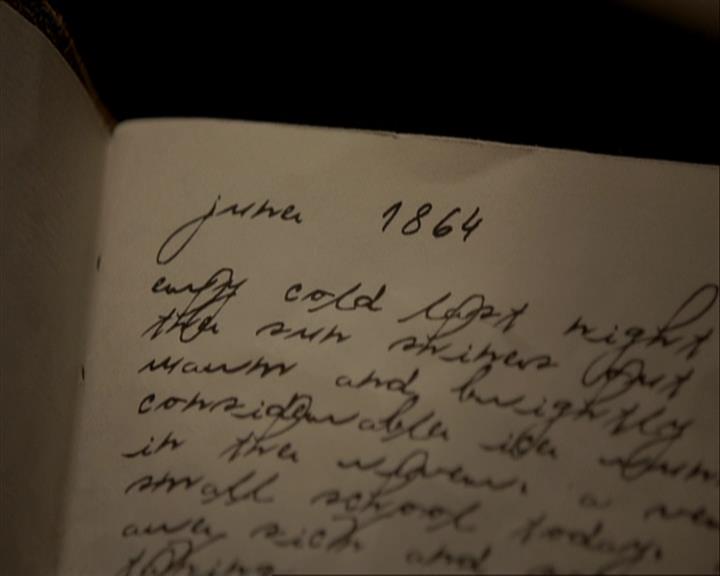 june 1864
cold last night
the sun shines out
warm and brightly
considerable ice
in the river. a
small school today.
are sick and